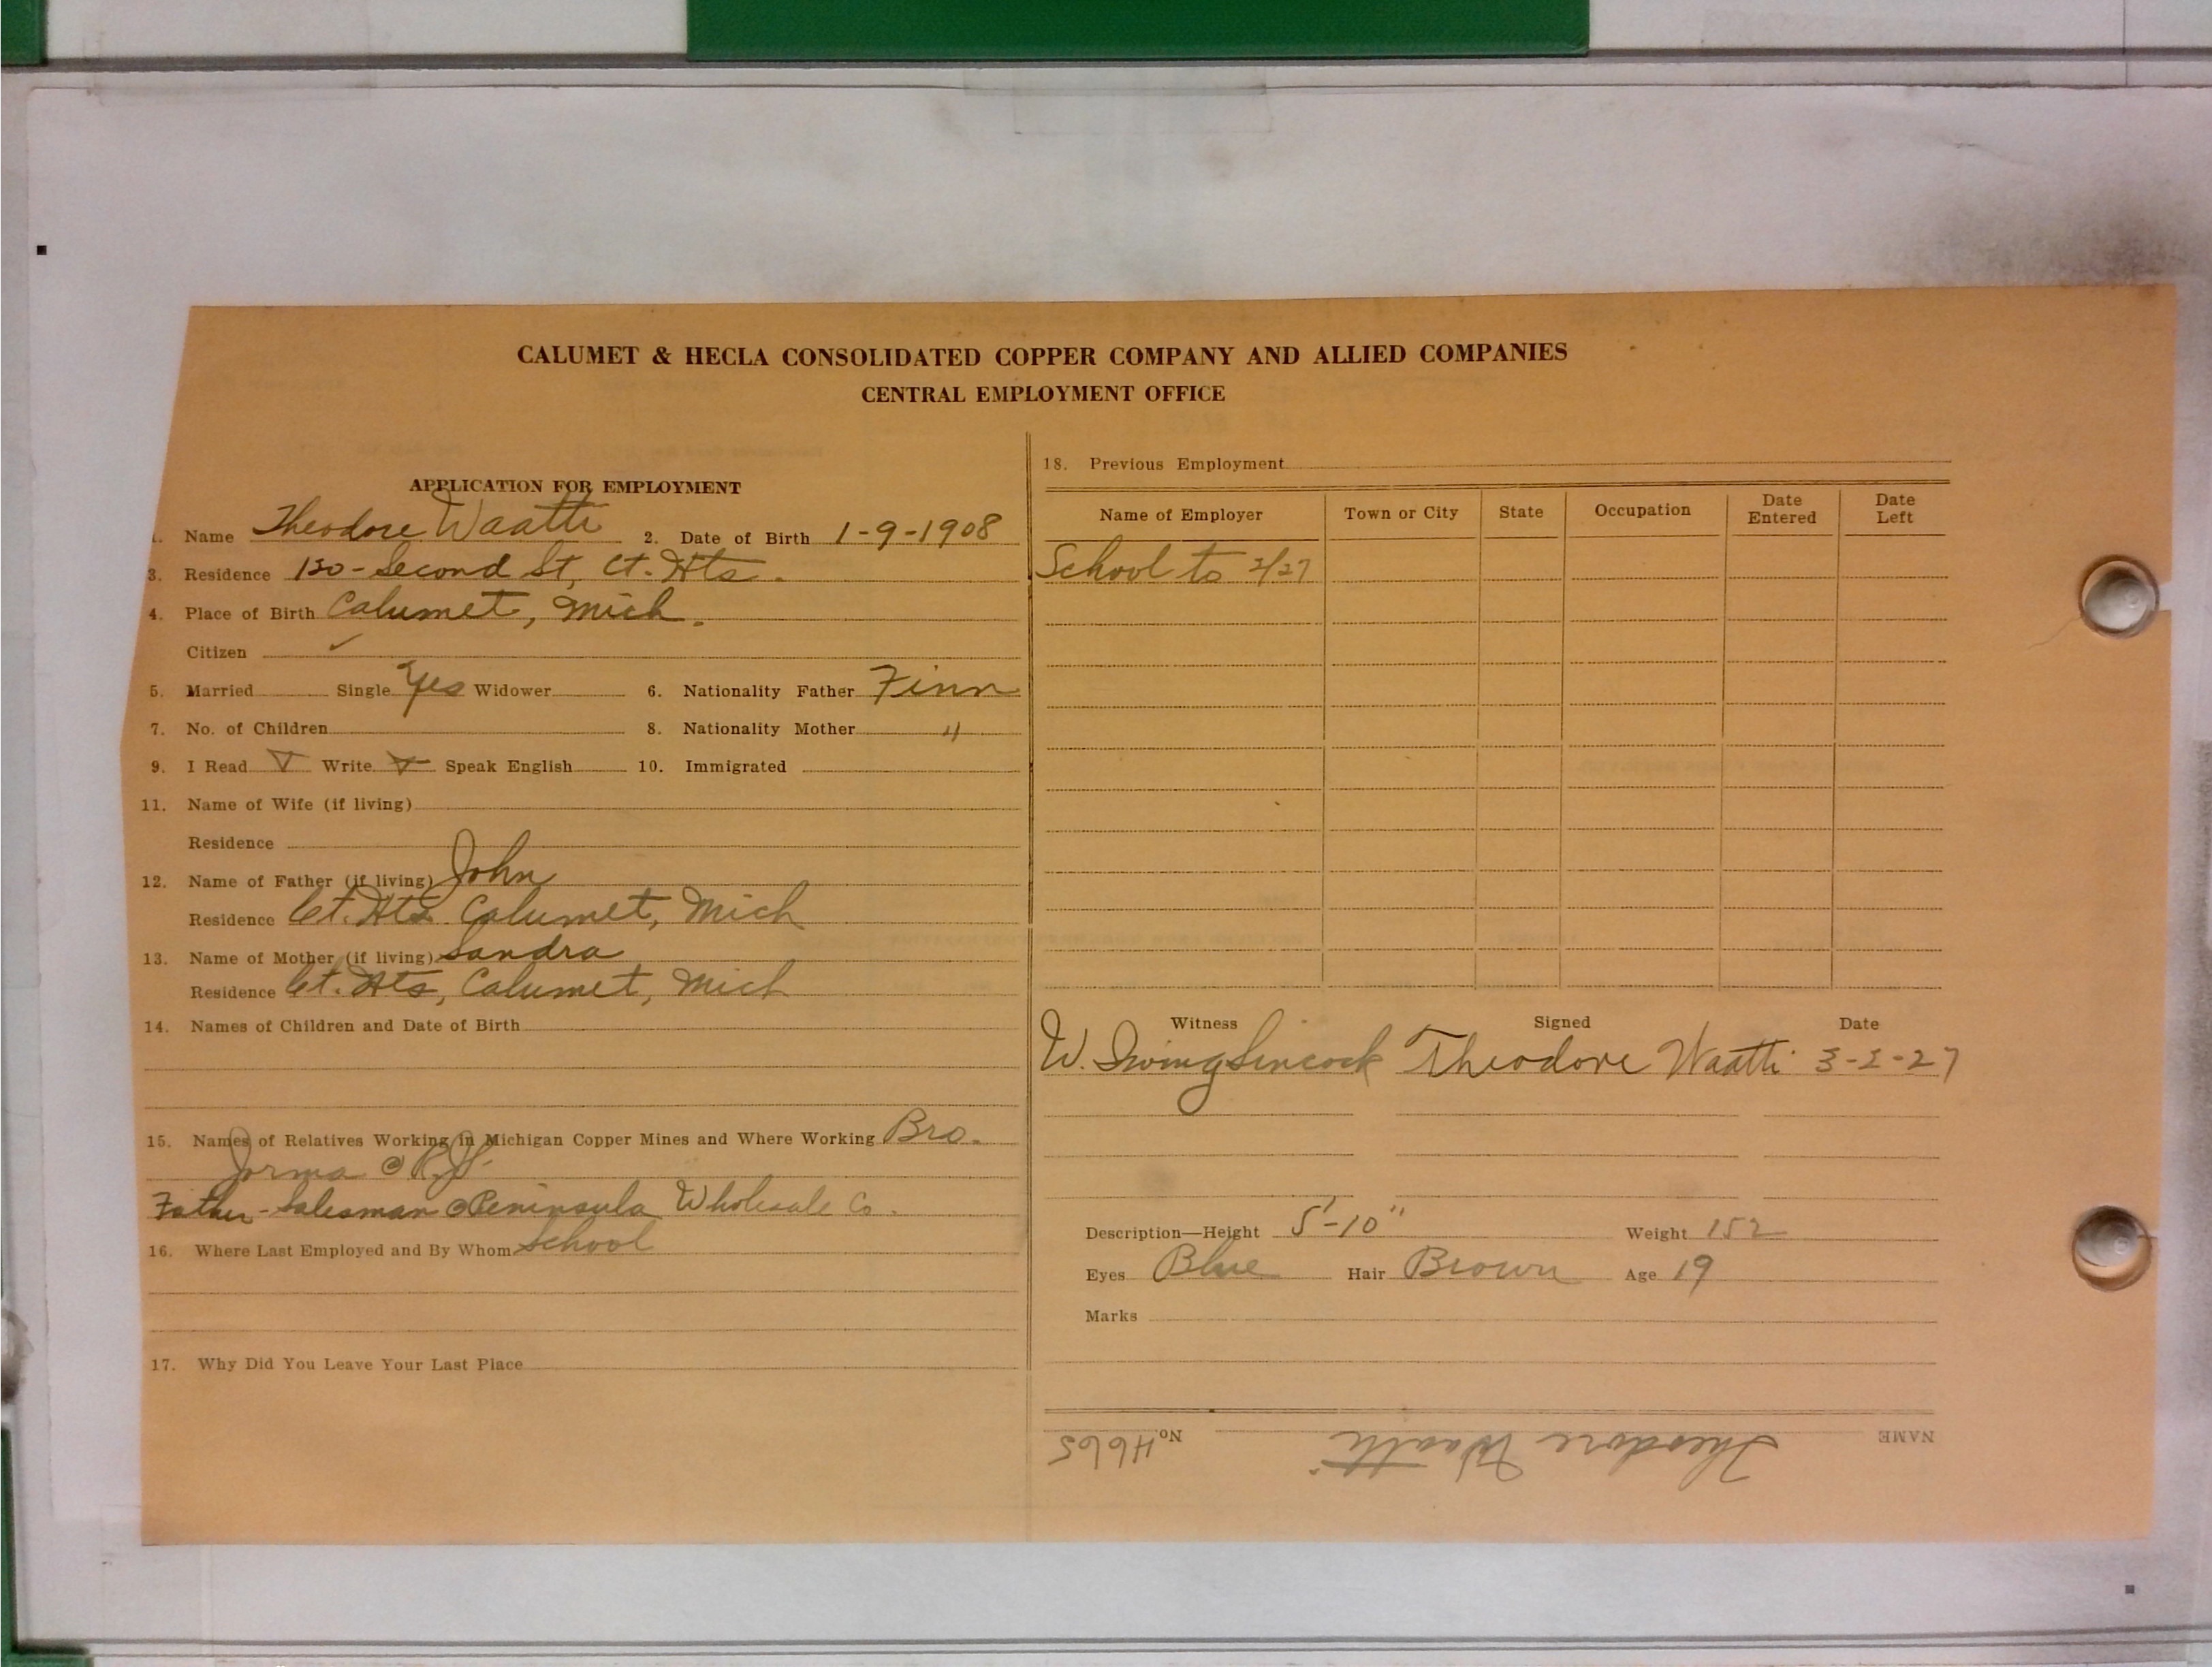 CALUMET & HECLA CONSOLIDATED COPPER COMPANY AND ALLIED COMPANIES
CENTRAL EMPLOYMENT OFFICE
APPLICATION FOR EMPLOYMENT
1. Name Theodore Waatti 2. Date of Birth 1-9-1908
3. Residence 130-Second St, Ct. Hts.
4. Place of Birth Calumet, Mich.
Citizen ✓
5. Married Single Yes Widower 6. Nationality Father Finn
7. No. of Children 8. Nationality Mother "
9. I Read Write Speak English 10. Immigrated
11. Name of Wife (if living)
Residence
12. Name of Father (if living) John
Residence Ct. Hts. Calumet, Mich
13. Name of Mother (if living) Sandra
Residence Ct. Hts, Calumet, Mich
14. Names of Children and Date of Birth
15. Names of Relatives Working in Michigan Copper Mines and Where Working Bro.
Jorma @
Father - Salesman @ Peninsula Wholesale Co.
16. Where Last Employed and By Whom School
17. Why Did You Leave Your Last Place
18. Previous Employment
Name of Employer Town or City State Occupation Date Entered Date Left
School to 2/27
Witness Signed Date
W. Irving Sincock Theodore Waatti 3-2-27
Description—Height 5'-10" Weight 152
Eyes Blue Hair Brown Age 19
Marks
NAME Theodore Waatti No. 4665